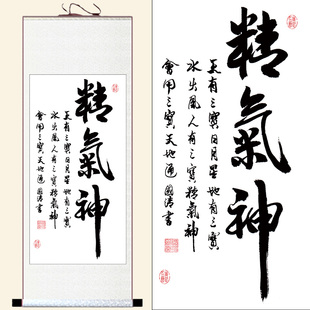 精氣神
天有三寶日月星地有三寶
水火風人有三寶精氣神
會用三寶天地通 國 書
精氣神
天有三寶日月星地有三寶
水火風人有三寶精氣神
會用三寶天地通 國 書